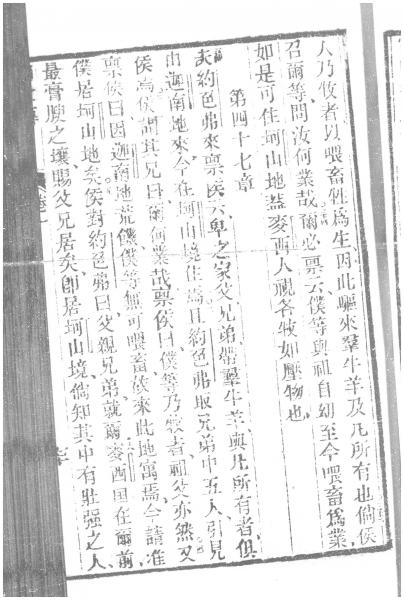 人乃牧者以喂畜牲為生、因此驅來羣牛羊及凡所有也倘侯
召爾等問汝何業哉爾必稟云、僕等與祖自幼至今喂畜為業、
如是可住坷山地蓋麥西人視各牧如壓物也、
第四十七章
夫約色弗來稟侯云、卑之家父兄弟、帶羣牛羊與凡所有者、俱
由迦南地來今在坷山境住焉且約色弗取兄弟中五人、引見
侯焉侯謂其兄曰爾何業哉稟侯曰僕等乃牧者、祖父亦然又
稟侯曰因迦南地荒饑僕等無可喂畜故來此地寓焉今請准
僕居坷山地矣侯對約色弗曰父親兄弟就爾麥西国在爾前
最膏腴之壤賜父兄居矣、即居坷山境、倘知其中有壯强之人、